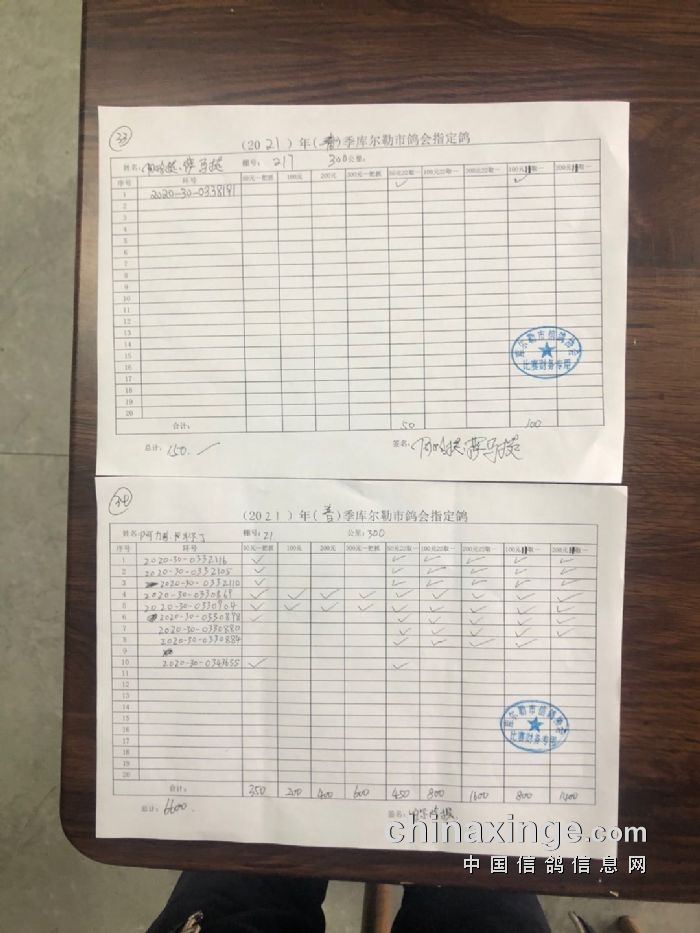 33
(2021)年(春)季库尔勒市鸽会指定鸽
姓名: 棚号: 217 300公里:
序号 环号 50元一把抓 100元 200元 300元一把抓 50元22取一 100元22取一 200元22取一 100元 取一 200元 取一
1 2020-30-0338191 ✓ ✓
2
3
4
5
6
7
8
9
10
11
12
13
14
15
16
17
18
19
20
合计: 50 100
总计: 150. 签名:
库尔勒市信鸽协会
比赛财务专用
34
(2021)年(春)季库尔勒市鸽会指定鸽
姓名: 棚号: 21 公里: 300
序号 环号 50元一把抓 100元 200元 300元一把抓 50元22取一 100元22取一 200元22取一 100元 取一 200元 取一
1 2020-30-0332116 ✓ ✓ ✓ ✓ ✓ ✓
2 2020-30-0332105 ✓ ✓ ✓ ✓ ✓ ✓
3 2020-30-0332110 ✓ ✓ ✓ ✓ ✓ ✓
4 2020-30-0330869 ✓ ✓ ✓ ✓ ✓ ✓ ✓ ✓ ✓
5 2020-30-0330904 ✓ ✓ ✓ ✓ ✓ ✓ ✓ ✓ ✓
6 2020-30-0330898 ✓ ✓ ✓ ✓ ✓ ✓
7 2020-30-0330880 ✓ ✓ ✓ ✓ ✓
8 2020-30-0330884 ✓ ✓ ✓ ✓
9
10 2020-30-0343655 ✓ ✓
11
12
13
14
15
16
17
18
19
20
合计: 350 200 400 600 450 800 1600 800 1400
总计: 6600. 签名:
库尔勒市信鸽协会
比赛财务专用
chinaxinge.com
中国信鸽信息网